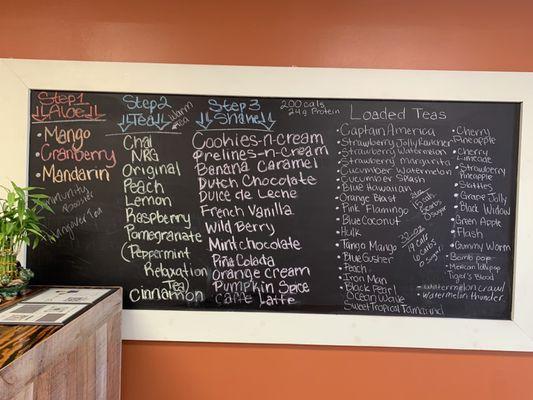 Step 1
↓Aloe↓
• Mango
• Cranberry
• Mandarin
Immunity
Booster
Hangover Tea
Step 2
↓Tea↓
Warm
Tea
Chai
NRG
Original
Peach
Lemon
Raspberry
Pomegranate
(Peppermint
Relaxation
Tea)
Cinnamon
Step 3
↓Shake↓
200 cals
24g Protein
Cookies-n-cream
Pralines-n-Cream
Banana Caramel
Dutch Chocolate
Dulce de Leche
French Vanilla
Wild Berry
Mint chocolate
Piña Colada
orange cream
Pumpkin Spice
Caffe Latte
Loaded Teas
• Captain America
• Strawberry Jolly Rancher
• Strawberry Watermelon
• Strawberry margarita
• Cucumber Watermelon
• Cucumber Splash
• Blue Hawaiian
• Orange Blast
• Pink Flamingo
• Blue Coconut
• Hulk
• Tango Mango
• Blue Gusher
• Peach
• Iron Man
• Black Pearl
Ocean Wave
Sweet Tropical Tamarind
32oz
24 cals
6 carbs
0 sugar
• Cherry
Pineapple
• Cherry
Limeade
• Strawberry
Pineapple
• Skittles
• Grape Jolly
• Black Widow
• Green Apple
• Flash
• Gummy Worm
• Bomb pop
• Mexican lollipop
Tiger's Blood
• watermelon crawl
• watermelon thunder